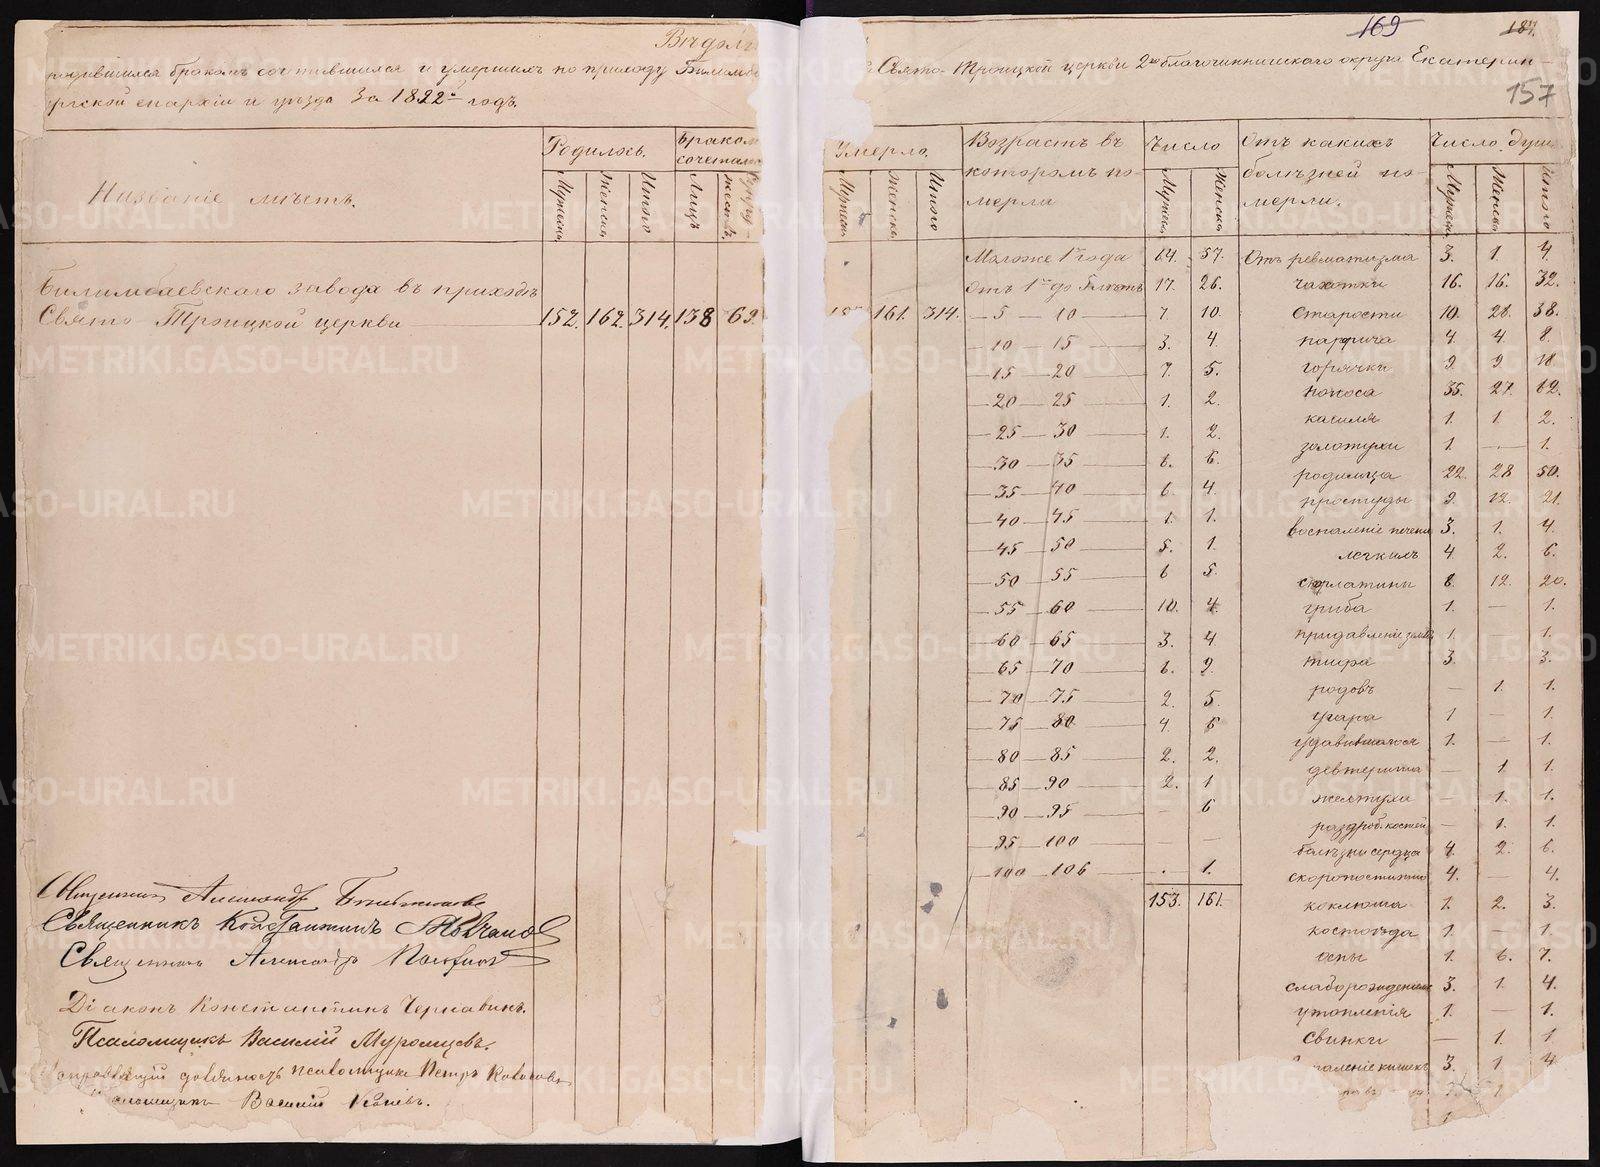 169
187.
157
Вѣдом
родившихся бракомъ сочетавшихся и умершихъ по приходу Билимба
Свято-Троицкой церкви 2го благочинническаго округа Екатерин-
ргской епархіи и уѣзда за 1822й годъ.
Названіе мѣстъ.
Родилось.
Мужеска
Женска
Итого
Браком
сочетало
Лицъ
Умерло.
Мужеска
Женска
Итого
Билимбаевскаго завода въ приходѣ
Свято Троицкой церкви 152. 162. 314. 138 69.
161. 314.
Священникъ Александръ
Священникъ Константинъ
Священникъ Александръ
Діаконъ Константинъ Чернавинъ.
Псаломщикъ Василій Муромцевъ.
должность псаломщика Петръ
Василій
Возрастъ въ
которомъ по-
мерли
Число
Мужеска
Женска
Моложе 1го года 64. 57.
Отъ 1го до 5 лѣтъ 17. 26.
5 — 10 7. 10.
10 15 3. 4.
15 20 7. 5.
20 — 25 1. 2.
25 — 30 1. 2.
30 — 35 6. 6.
35 — 40 6. 4.
40 — 45 1. 1.
45 — 50 5. 1.
50 — 55 6 5.
55 — 60 10. 4.
60 65 3. 4
65 — 70 6. 2.
70 — 75 2. 5.
75 — 80 4. 6
80 — 85 2. 2.
85 — 90 2. 1
90 — 95 — 6
95 — 100 — —
100 — 106 . 1.
153. 161.
Отъ какихъ
болѣзней по-
мерли.
Число душъ
Мужеска
Женска
Итого
Отъ ревматизма 3. 1. 4.
чахотки 16. 16. 32.
старости 10. 28. 38.
4. 4. 8.
горячки 9. 9. 18.
поноса 35. 27. 62.
кашля 1. 1. 2.
золотухи 1. — 1.
родимца 22. 28 50.
простуды 9. 12. 21
воспаленіе печени 3. 1. 4.
легкихъ 4. 2. 6.
скарлатины 8. 12. 20.
гриба 1. — 1.
придавленіе 1. — 1.
тифа 3. 3.
родовъ — 1. 1.
угара 1 — 1.
удавившагося 1. — 1.
девтерита — 1 1.
желтухи — 1. 1.
раздроб. костей — 1. 1.
болѣзни сердца 4. 2. 6.
скоропостижно 4. — 4.
коклюша 1. 2. 3.
костоѣда 1. — 1.
оспы 1. 6. 7.
слаборожденные 3. 1 4.
утопленія 1. — 1.
свинки — 1. 1
паленіе кишекъ 3. 1 4
METRIKI.GASO-URAL.RU